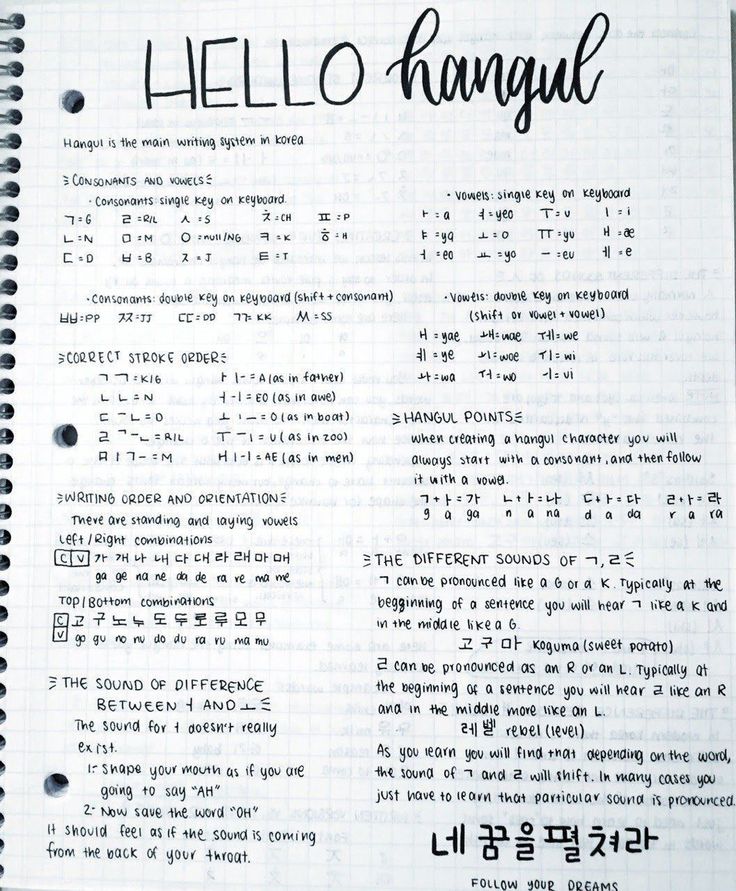 HELLO hangul
Hangul is the main writing system in korea
CONSONANTS AND VOWELS
· Consonants: single key on keyboard.
ㄱ=G ㄹ=R/L ㅅ=S ㅊ=CH ㅍ=P
ㄴ=N ㅁ=M ㅇ=null/NG ㅋ=K ㅎ=H
ㄷ=D ㅂ=B ㅈ=J ㅌ=T
· Consonants: double key on keyboard (shift + consonant)
ㅃ=PP ㅉ=JJ ㄸ=DD ㄲ=KK ㅆ=SS
CORRECT STROKE ORDER
ㄱ ㄱ = K/G
ㄴ ㄴ = N
ㄷ ㅡ ㄴ = D
ㄹ ㄱ ㅡ ㄴ = R/L
ㅁ ㅣ ㄱ ㅡ = M
ㅏ ㅣ ㅡ = A (as in father)
ㅓ ㅡ ㅣ = EO (as in awe)
ㅗ ㅣ ㅡ = O (as in boat)
ㅜ ㅡ ㅣ = U (as in zoo)
ㅐ ㅣ ㅡ ㅣ = AE (as in men)
WRITING ORDER AND ORIENTATION
There are standing and laying vowels
Left / Right combinations
C V 가 개 나 내 다 대 라 래 마 매
ga ge na ne da de ra re ma me
Top/Bottom combinations
C 고 구 노 누 도 두 로 루 모 우
V go gu no nu do du ra ru ma mu
THE SOUND OF DIFFERENCE
BETWEEN ㅓ AND ㅗ
The sound for ㅓ doesn't really
exist.
1- Shape your mouth as if you are
going to say "AH"
2- Now save the word "OH"
It should feel as if the sound is coming
from the back of your throat.
· Vowels: single key on keyboard
ㅏ = a ㅕ = yeo ㅜ = u ㅣ = i
ㅑ = ya ㅗ = o ㅠ = yu ㅐ = æ
ㅓ = eo ㅛ = yo ㅡ = eu ㅔ = e
· Vowels: double key on keyboard
(shift or vowel + vowel)
ㅒ = yae ㅙ = wae ㅞ = we
ㅖ = ye ㅚ = woe ㅟ = wi
ㅘ = wa ㅝ = wo ㅢ = ui
HANGUL POINTS
when creating a hangul character you will
always start with a consonant, and then follow
it with a vowel.
ㄱ+ㅏ=가 ㄴ+ㅏ=나 ㄷ+ㅏ=다 ㄹ+ㅏ=라
g a ga n a na d a da r a ra
THE DIFFERENT SOUNDS OF ㄱ, ㄹ
ㄱ can be pronounced like a G or a K. Typically at the
begginning of a sentence you will hear ㄱ like a K and
in the middle like a G.
고 구 마 Koguma (sweet potato)
ㄹ can be pronounced as an R or an L. Typically at
the beginning of a sentence you will hear ㄹ like an R
and in the middle more like an L.
레 벨 rebel (level)
As you learn you will find that depending on the word,
the sound of ㄱ and ㄹ will shift. In many cases you
just have to learn that particular sound is pronounced.
네 꿈을 펼 쳐라
FOLLOW YOUR DREAMS